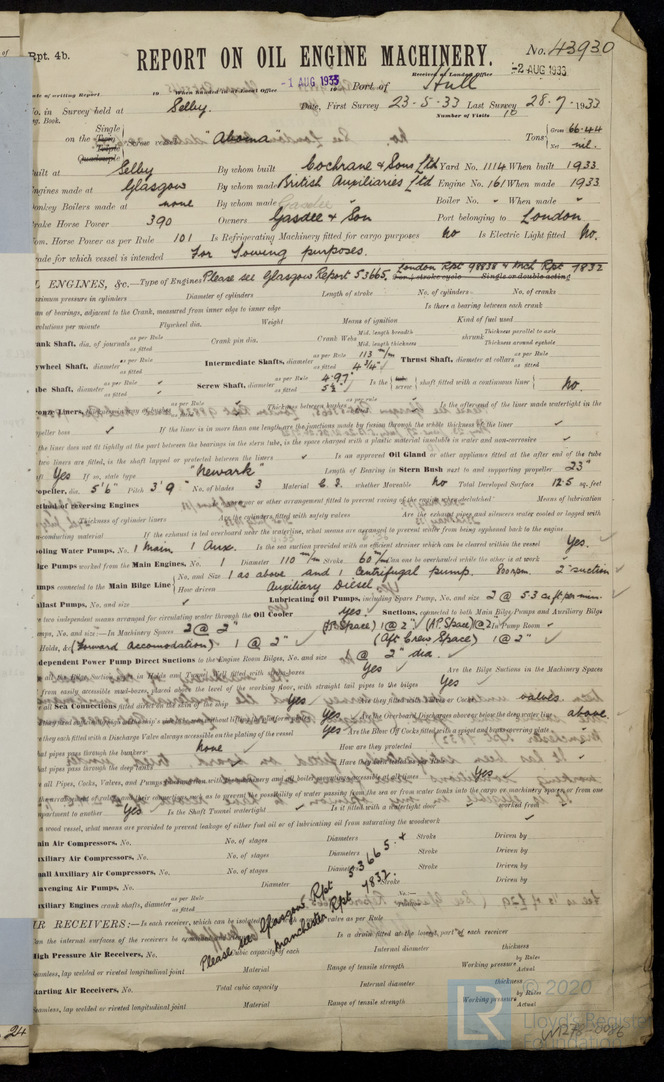 Rpt. 4b.
REPORT ON OIL ENGINE MACHINERY.
No. 43930
Received at London Office
-2 AUG 1933
-1 AUG 1933
Port of Hull
Survey held at Selby.
Date, First Survey 23-5-33 Last Survey 28.7.1933
Number of Visits 10
Single
on the
Tons Gross 66.44
Net nil.
Built at Selby By whom built Cochrane & Sons Ltd Yard No. 1114 When built 1933
Engines made at Glasgow By whom made British Auxiliaries Ltd Engine No. 161 When made 1933
Donkey Boilers made at none By whom made Boiler No. When made
Brake Horse Power 390 Owners Gasdee & Son Port belonging to London
Nom. Horse Power as per Rule 101 Is Refrigerating Machinery fitted for cargo purposes No Is Electric Light fitted No.
Trade for which vessel is intended For Towing purposes.
OIL ENGINES, &c. Type of Engines Please see Glasgow Report 53665. London Rpt 98838 & Mch Rpt 7832
Maximum pressure in cylinders Diameter of cylinders Length of stroke No. of cylinders No. of cranks
Span of bearings, adjacent to the Crank, measured from inner edge to inner edge Is there a bearing between each crank
Revolutions per minute Flywheel dia. Weight Means of ignition Kind of fuel used
Crank Shaft, dia. of journals as per Rule as fitted Crank pin dia. Crank Webs Mid. length breadth Mid. length thickness shrunk Thickness parallel to axis Thickness around eyehole
Flywheel Shaft, diameter as per Rule as fitted Intermediate Shafts, diameter as per Rule 113 m/m as fitted 4 3/4" Thrust Shaft, diameter at collars as per Rule as fitted
Tube Shaft, diameter as per Rule as fitted Screw Shaft, diameter as per Rule 4.97" as fitted 5 1/2" Is the screw shaft fitted with a continuous liner No
Bronze Liners, Thickness between bushes as per Rule Is the after end of the liner made watertight in the
propeller boss If the liner is in more than one length are the junctions made by fusion through the whole thickness of the liner
If the liner does not fit tightly at the part between the bearings in the stern tube, is the space charged with a plastic material insoluble in water and non-corrosive
If two liners are fitted, is the shaft lapped or protected between the liners Is an approved Oil Gland or other appliance fitted at the after end of the tube
Yes If so, state type "Newark" Length of Bearing in Stern Bush next to and supporting propeller 23"
Propeller, dia. 5'6" Pitch 3'9" No. of blades 3 Material whether Moveable No Total Developed Surface 12.5 sq. feet
Method of reversing Engines Means of lubrication
Thickness of cylinder liners Are the cylinders fitted with safety valves Are the exhaust pipes and silencers water cooled or lagged with
non-conducting material If the exhaust is led overboard near the waterline, what means are arranged to prevent water being syphoned back to the engine
Cooling Water Pumps, No. 1 Main 1 Aux. Is the sea suction provided with an efficient strainer which can be cleared within the vessel Yes.
Bilge Pumps worked from the Main Engines, No. 1 Diameter 110 m/m Stroke 60 m/m Can one be overhauled while the other is at work
Pumps connected to the Main Bilge Line No. and Size 1 as above and 1 Centrifugal pump. 2" suction
How driven Auxiliary Diesel
Ballast Pumps, No. and size Lubricating Oil Pumps, including Spare Pump, No. and size 2 @ 53 cu ft per min.
Are two independent means arranged for circulating water through the Oil Cooler Yes Suctions, connected to both Main Bilge Pumps and Auxiliary Bilge
Pumps, No. and size:—In Machinery Spaces 2 @ 2" (F.P. Space) 1 @ 2" (A.P. Space) @ 2 In Pump Room
In Holds, &c. (Forward Accomodation) 1 @ 2" (Aft Crew Space) 1 @ 2"
Independent Power Pump Direct Suctions to the Engine Room Bilges, No. and size @ 2" dia.
Yes Are the Bilge Suctions in the Machinery Spaces
from easily accessible mud-boxes, placed above the level of the working floor, with straight tail pipes to the bilges Yes
all Sea Connections Yes valves
Yes Are the Overboard Discharges above or below the deep water line above
Are they each fitted with a Discharge Valve always accessible on the plating of the vessel Yes Are the Blow Off Cocks fitted with a spigot and brass covering plate
What pipes pass through the bunkers none How are they protected
What pipes pass through the deep tanks
all Pipes, Cocks, Valves, and Pumps Yes
compartment to another Yes Is the Shaft Tunnel watertight Is it fitted with a watertight door worked from
If a wood vessel, what means are provided to prevent leakage of either fuel oil or lubricating oil from saturating the woodwork
Main Air Compressors, No. No. of stages Diameters Stroke Driven by
Auxiliary Air Compressors, No. No. of stages Diameters Stroke Driven by
Small Auxiliary Air Compressors, No. No. of stages Diameters Stroke Driven by
Scavenging Air Pumps, No. Diameter Stroke Driven by
Auxiliary Engines crank shafts, diameter as per Rule as fitted
Please see Glasgow Rpt 53665. &
Manchester Rpt 7832.
AIR RECEIVERS:—Is each receiver, which can be isolated
Can the internal surfaces of the receivers be Is a drain fitted at the lowest part of each receiver
High Pressure Air Receivers, No. Cubic capacity of each Internal diameter thickness
Seamless, lap welded or riveted longitudinal joint Material Range of tensile strength Working pressure by Rules Actual
Starting Air Receivers, No. Total cubic capacity Internal diameter thickness
Seamless, lap welded or riveted longitudinal joint Material Range of tensile strength Working pressure by Rules Actual
24
LR
© 2020
Lloyd's Register
Foundation